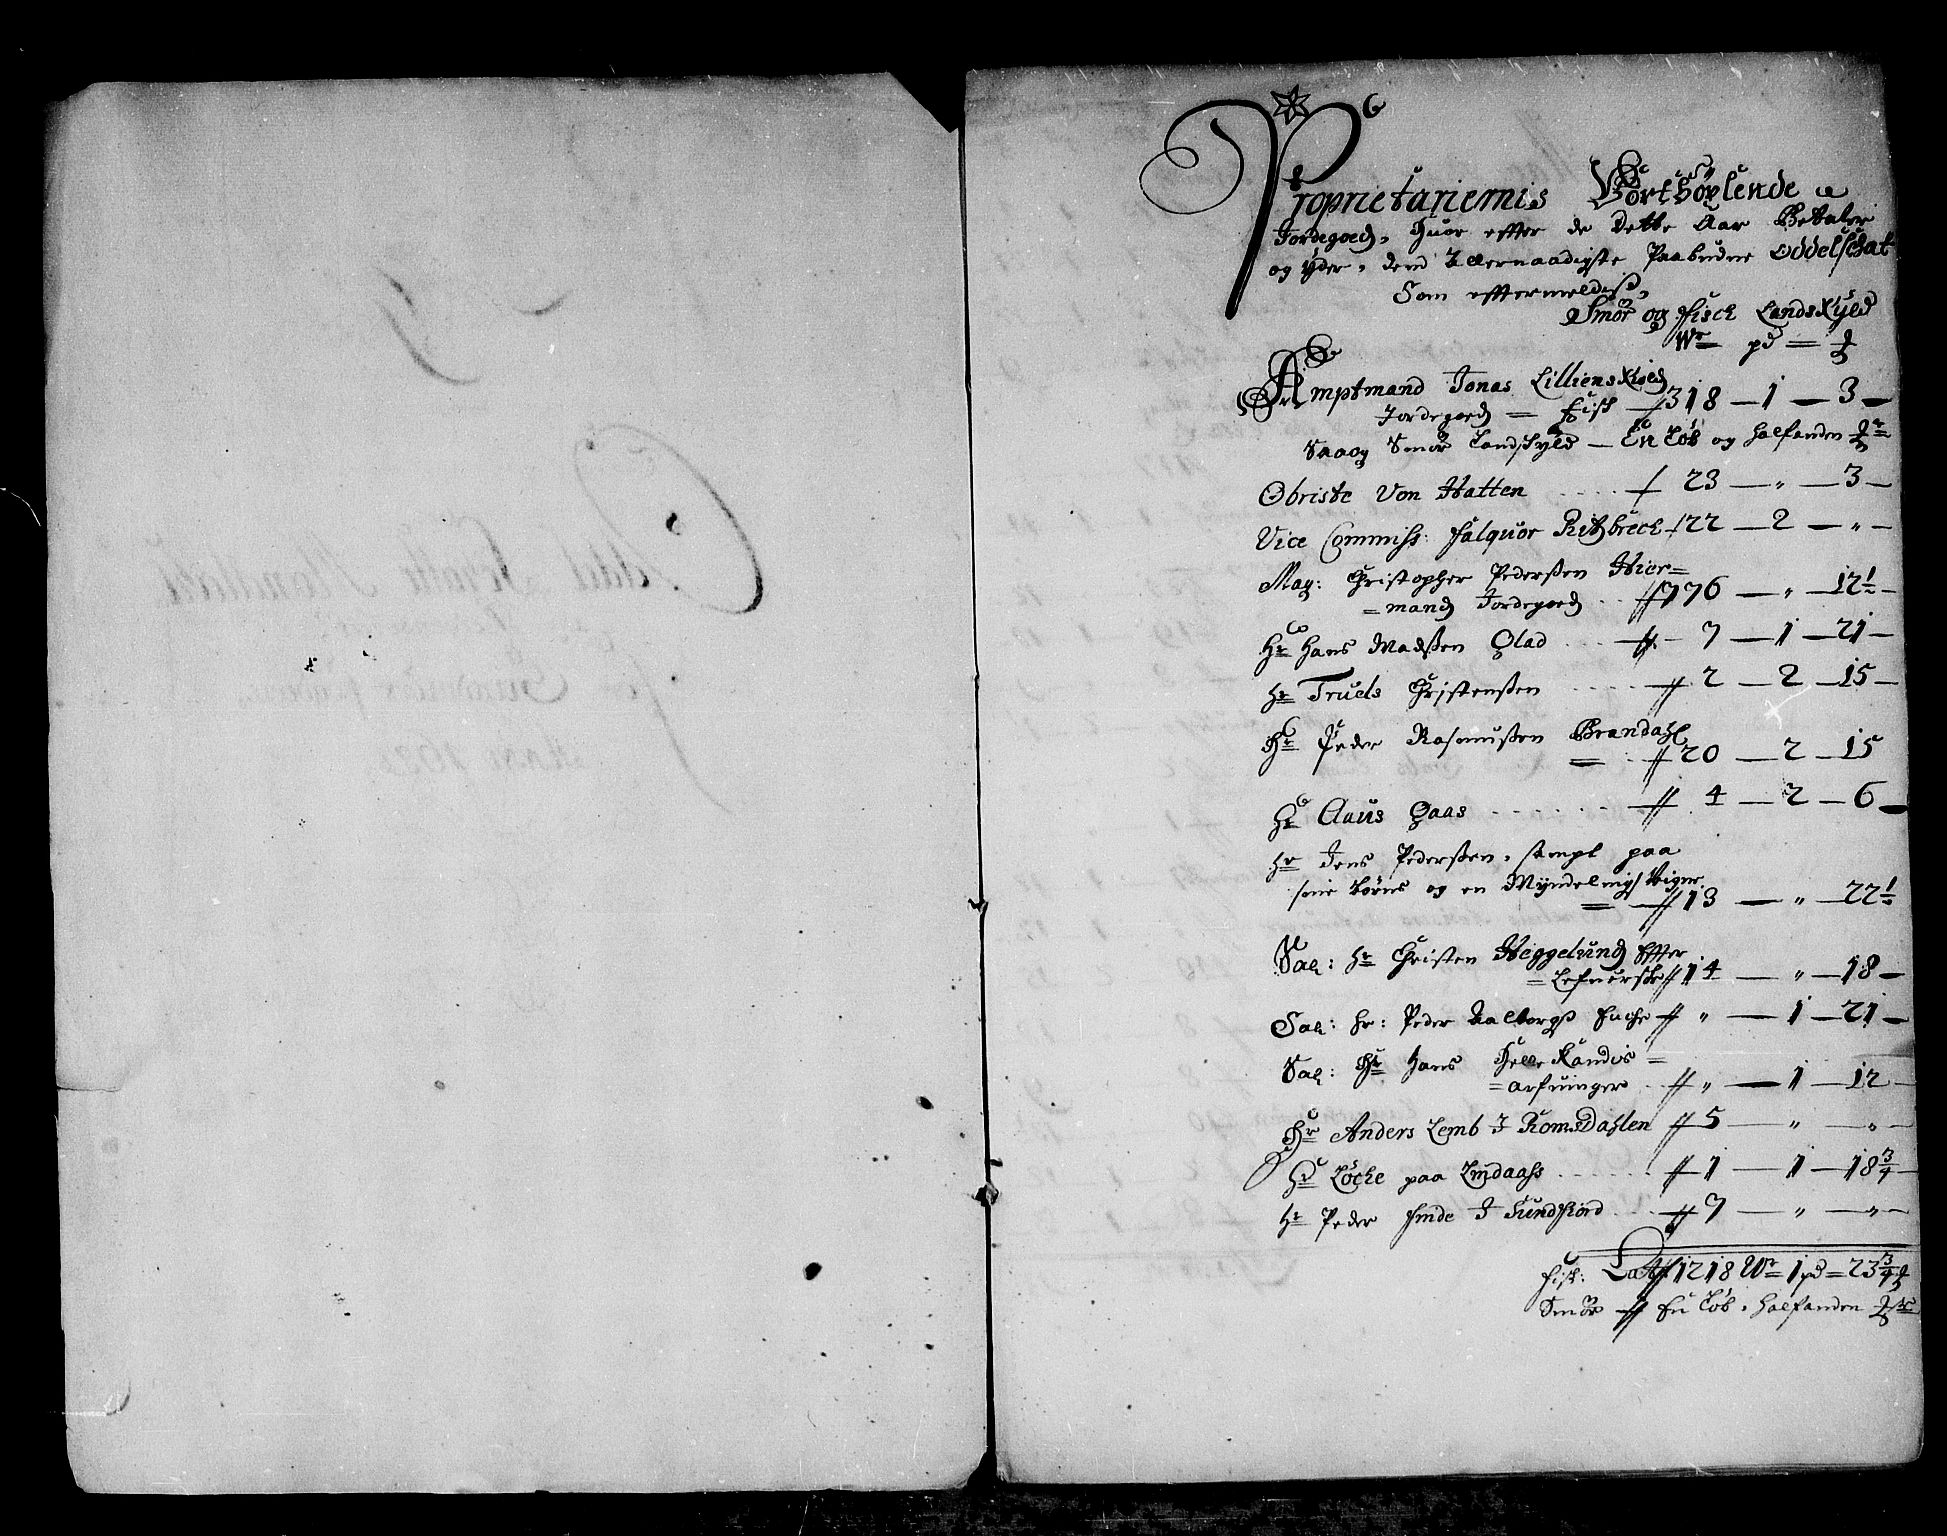 Proprietariernis Bortböxlende
Jordegoeds, Huor effter de dette Aar Betaler
og Yder, dend Allernaadigste Paabudne Oddelschat
Som efftermeldess,
Smör og fisch Landskyld
Wr pd
Amptmand Jonas Lillienskiolds
Jordegoeds = Fisk 318 — 1 — 3 —
Saa og Smör Landskyld — En Löb og halfanden
Obriste Von Hatten 23 — " — 3 —
Vice Commiss: falquor Ritzbrech 122 — 2 — " —
Mag: Christopher Pederssen Hier=
=mands Jordegoeds 776 — " — 12½ —
Hr Hans Madssen Blad 7 — 1 — 21 —
Hr Truels Christenssen 2 — 2 — 15 —
Hr Peder Rasmussen Brandahl
20 — 2 — 15
Hr Claus Gaas 4 — 2 — 6 —
Hr Jens Pederssen, sampt paa
sine börns og en Myndelings Veigne
13 — " — 22½
Sal: Hr Christen Heggelunds Effter
=Lefuerske 14 — " — 18 —
Sal: Hr: Peder Aalborgs Enche " — 1 — 21 —
Sal: Hr Hans Helle Kandis=
=arfuinger " — 1 — 12 —
Hr Anders Lemb I Romsdahlen 5 — " — " —
Hr Löche paa Lindaass 1 — 1 — 18¾ —
Hr Peder Finde I Sundfiord 7 — " — " —
Fisk: Lat 1218 Wr 1 pd = 23¾
Smör En Löb, halfanden